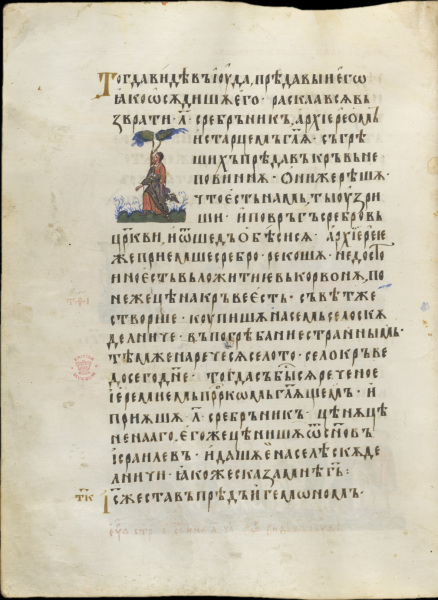 Тогда видѣвъ іѹда, прѣдавыи его
ꙗко ѡсѫдишѧ его· раскаавсѧ въ
зврати ·л҃· сребрьникъ, архіереѡмь
и старцемъ гл҃ѧ· съгрѣ
шихъ прѣдавъ кръвь не
повиннѫ· Они же рѣшѧ·
что есть намь, ты ѹзри
ши· и поврьгъ сребро въ
цр҃кви, и ѿшедъ ѡбѣсисѧ· архіерее
же пріемше сребро· рекошѧ· недосто
ино есть вложити е въ корвонѫ, по
неже цѣна кръве есть· съвѣт же
створше· коупишѧ на семь село скѫ
делниче· въ погрѣбаніе страннымъ·
тѣмже наречесѧ село то· село кръве
до сего дн҃е· тогда събыⷭ҇сѧ реченое
іереміемъ прⷪ҇ркомъ гл҃ѧщемъ· и
пріѧшѧ ·л҃· сребрьникъ· цѣнѫ цѣ
неннаго, егоже цѣнишѧ ѿ сн҃овъ
ісраилевъ· и дашѧ ѧ на селѣ скѫде
лничи· ꙗкоже сказа мнѣ г҃ь:
І҃с же ста прѣдъ игемономъ·